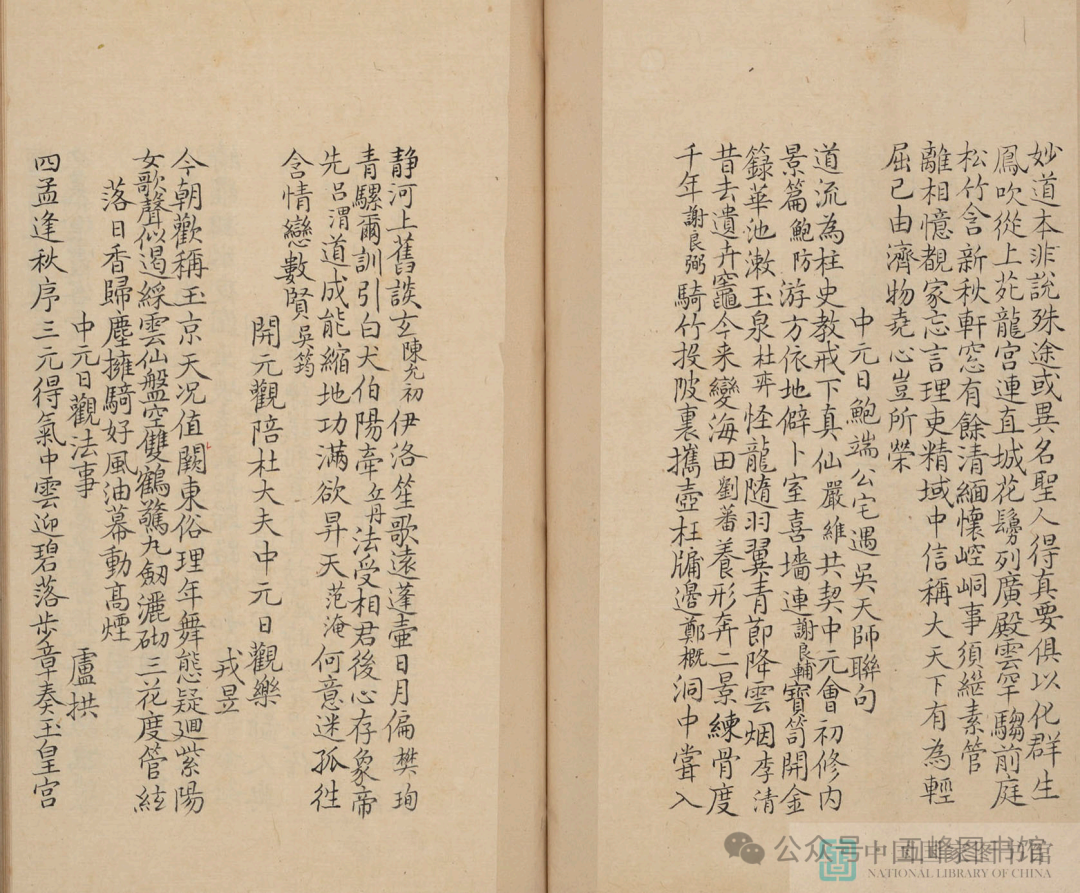 妙道本非説殊途或異名聖人得真要俱以化群生
鳳吹從上苑龍宮連直城花鬘列廣殿雲罕騶前庭
松竹含新秋軒窓有餘清緬懷崆峒事須繼素管
離相憶覩家忘言理吏精域中信稱大天下有為輕
屈己由濟物堯心豈所榮
中元日鮑端公宅遇吴天師聯句
道流為柱史教戒下真仙嚴維共契中元會初修内
景篇鮑防游方依地僻卜室喜墻連謝良輔寶笥開金
籙華池漱玉泉杜弈怪龍隨羽翼青節降雲烟李清
昔去遺卉竈今来變海田劉蕃養形奔二景練骨度
千年謝良弼騎竹投陂裏攜壺枉牖邊鄭概洞中嘗入
静河上舊談玄陳允初伊洛笙歌遠蓬壺日月偏樊珣
青騾爾訓引白犬伯陽牽丘丹法受相君後心存象帝
先吕渭道成能縮地功滿欲昇天范淹何意迷孤徃
含情戀數賢吴筠
開元觀陪杜大夫中元日觀樂
戎昱
今朝歡稱玉京天况值關東俗理年舞態疑廻紫陽
女歌聲似遏綵雲仙盤空雙鶴驚九劒灑砌三花度管絃
落日香歸塵擁騎好風油幕動高煙
中元日觀法事
盧拱
四孟逢秋序三元得氣中雲迎碧落步章奏玉皇宮
公众号·五峰图书馆
中国国家图书馆
NATIONAL LIBRARY OF CHINA